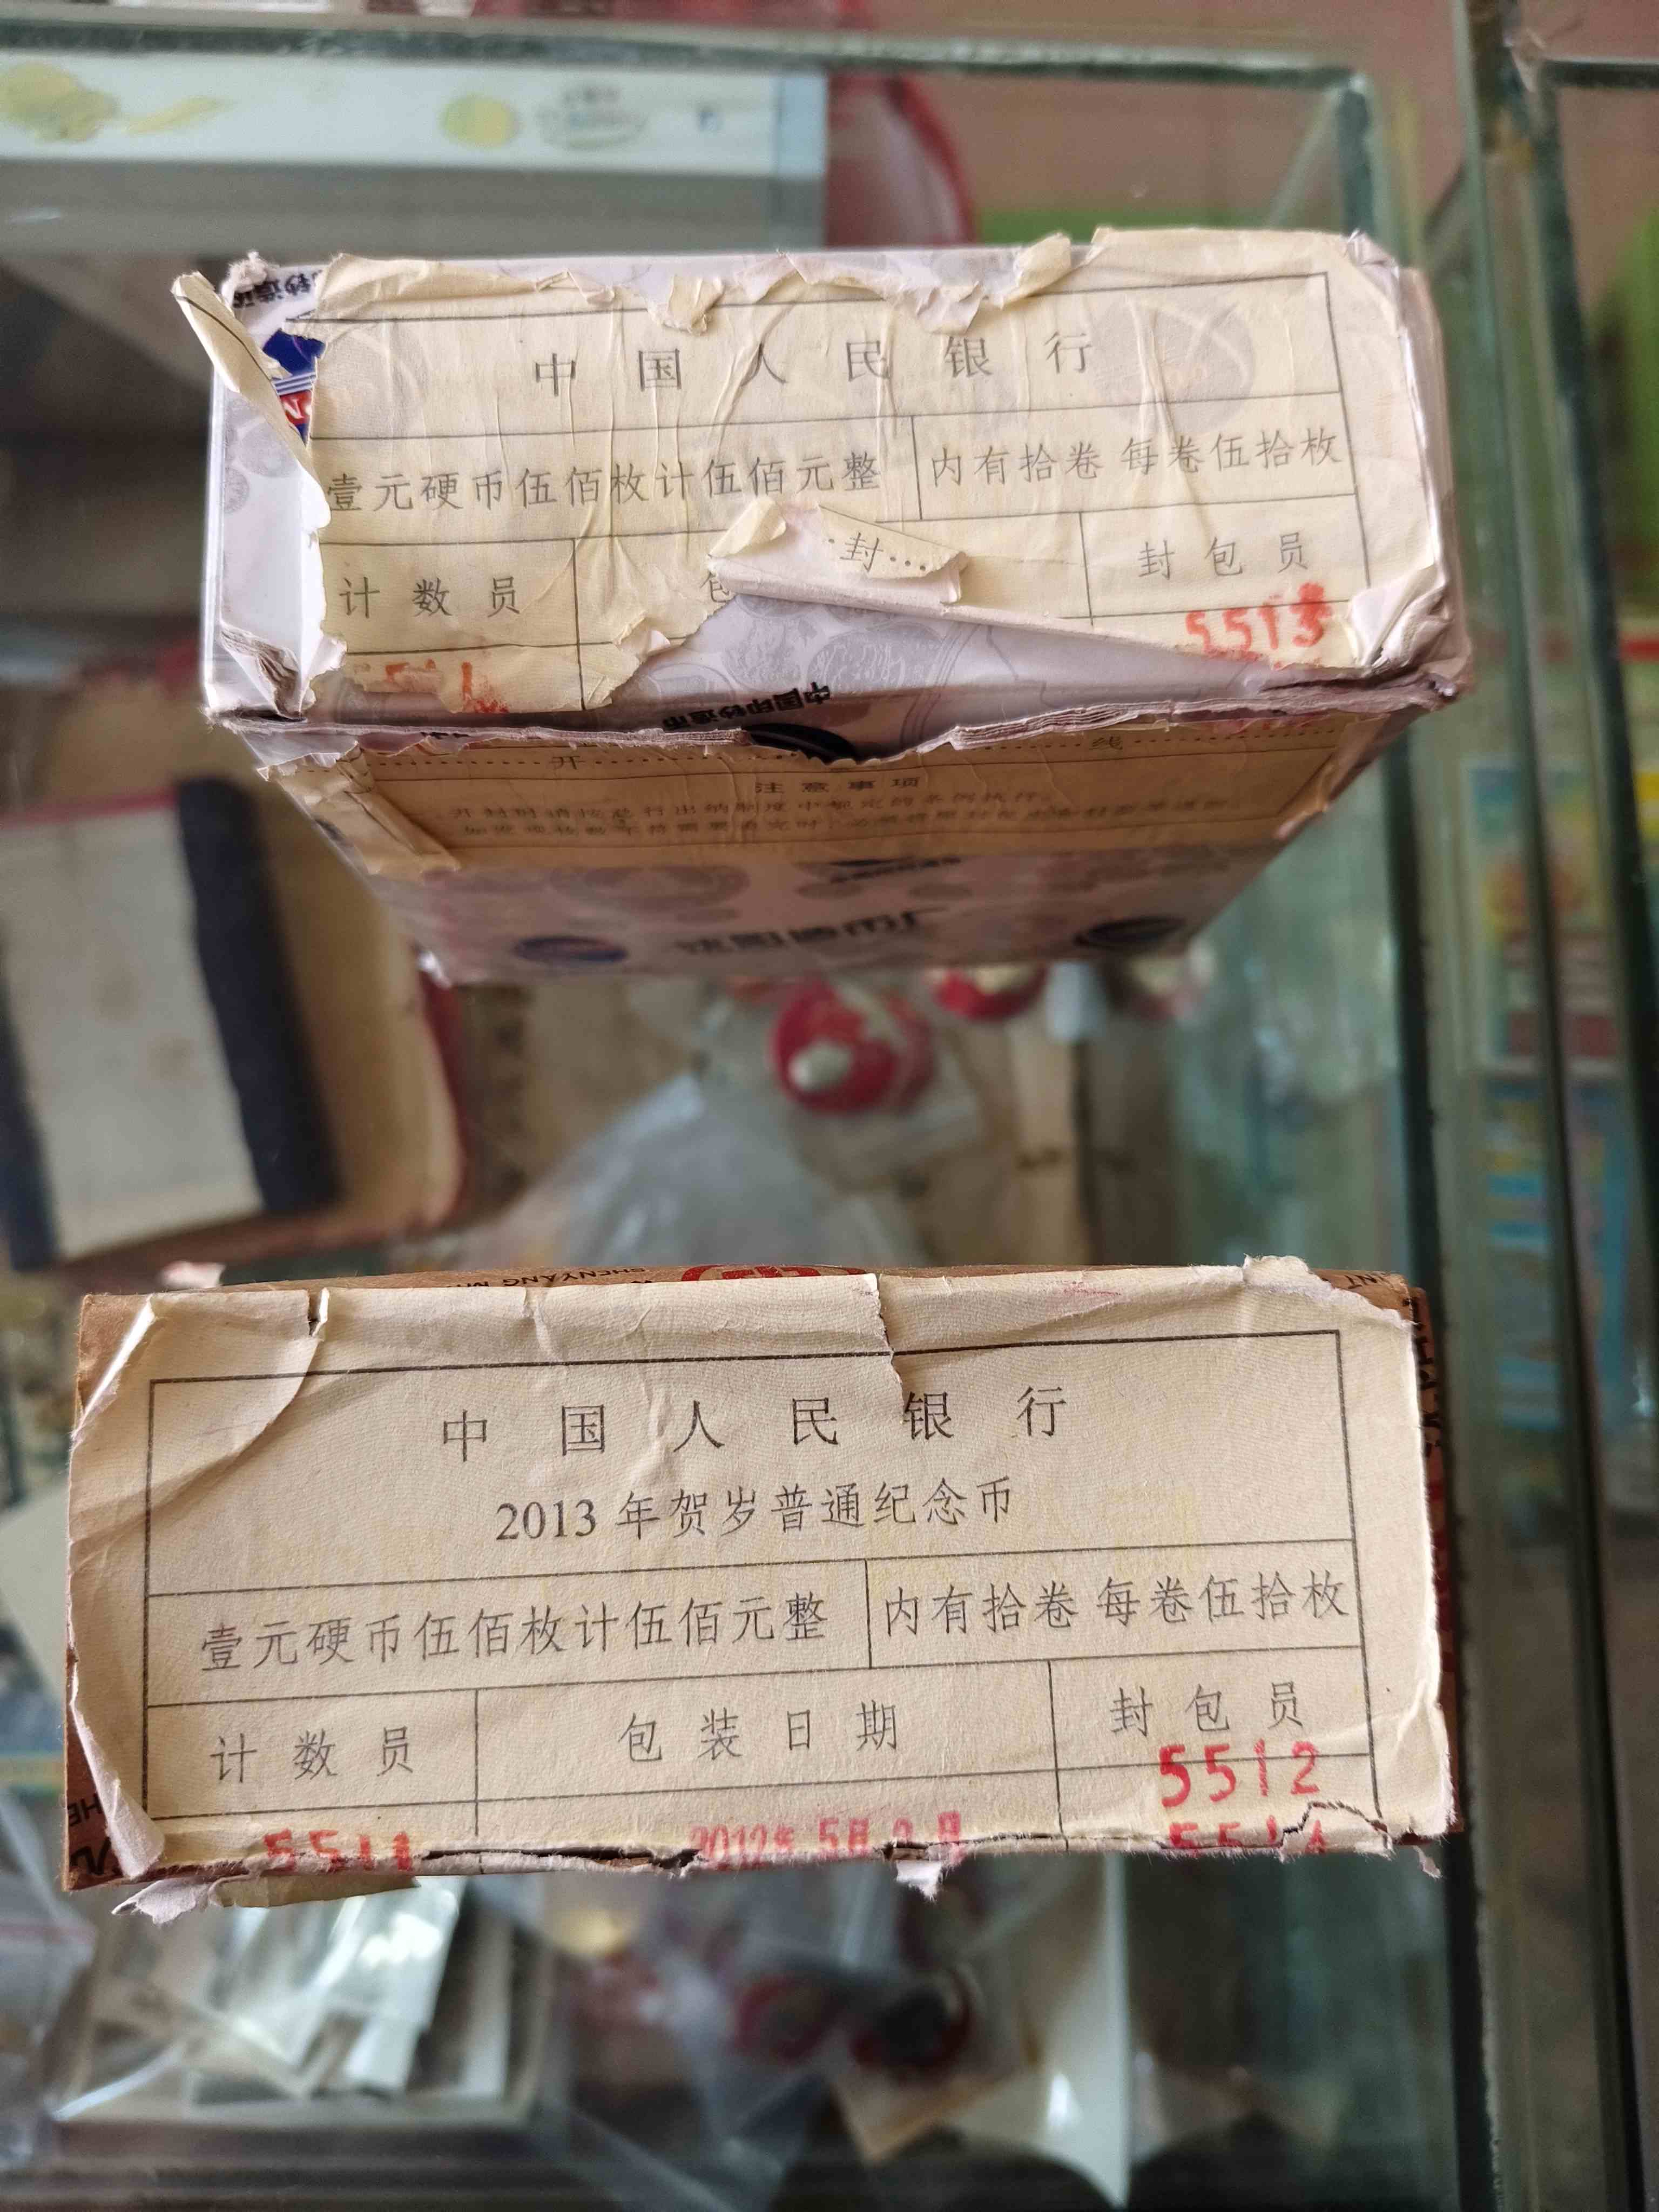 中国人民银行
壹元硬币伍佰枚计伍佰元整 内有拾卷 每卷伍拾枚
封
计数员 包 封包员
5513
中国印钞造币
开 线
注意事项
中国人民银行
2013年贺岁普通纪念币
壹元硬币伍佰枚计伍佰元整 内有拾卷 每卷伍拾枚
计数员 包装日期 封包员
5512
5511 2012年5月2日 5514